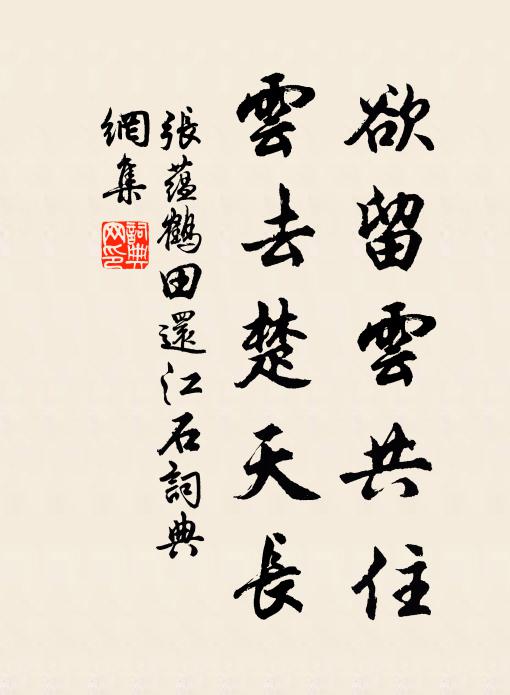 欲留雲共住
雲去楚天長
張蘊鶴田還江石詞典
網集
詞典网印